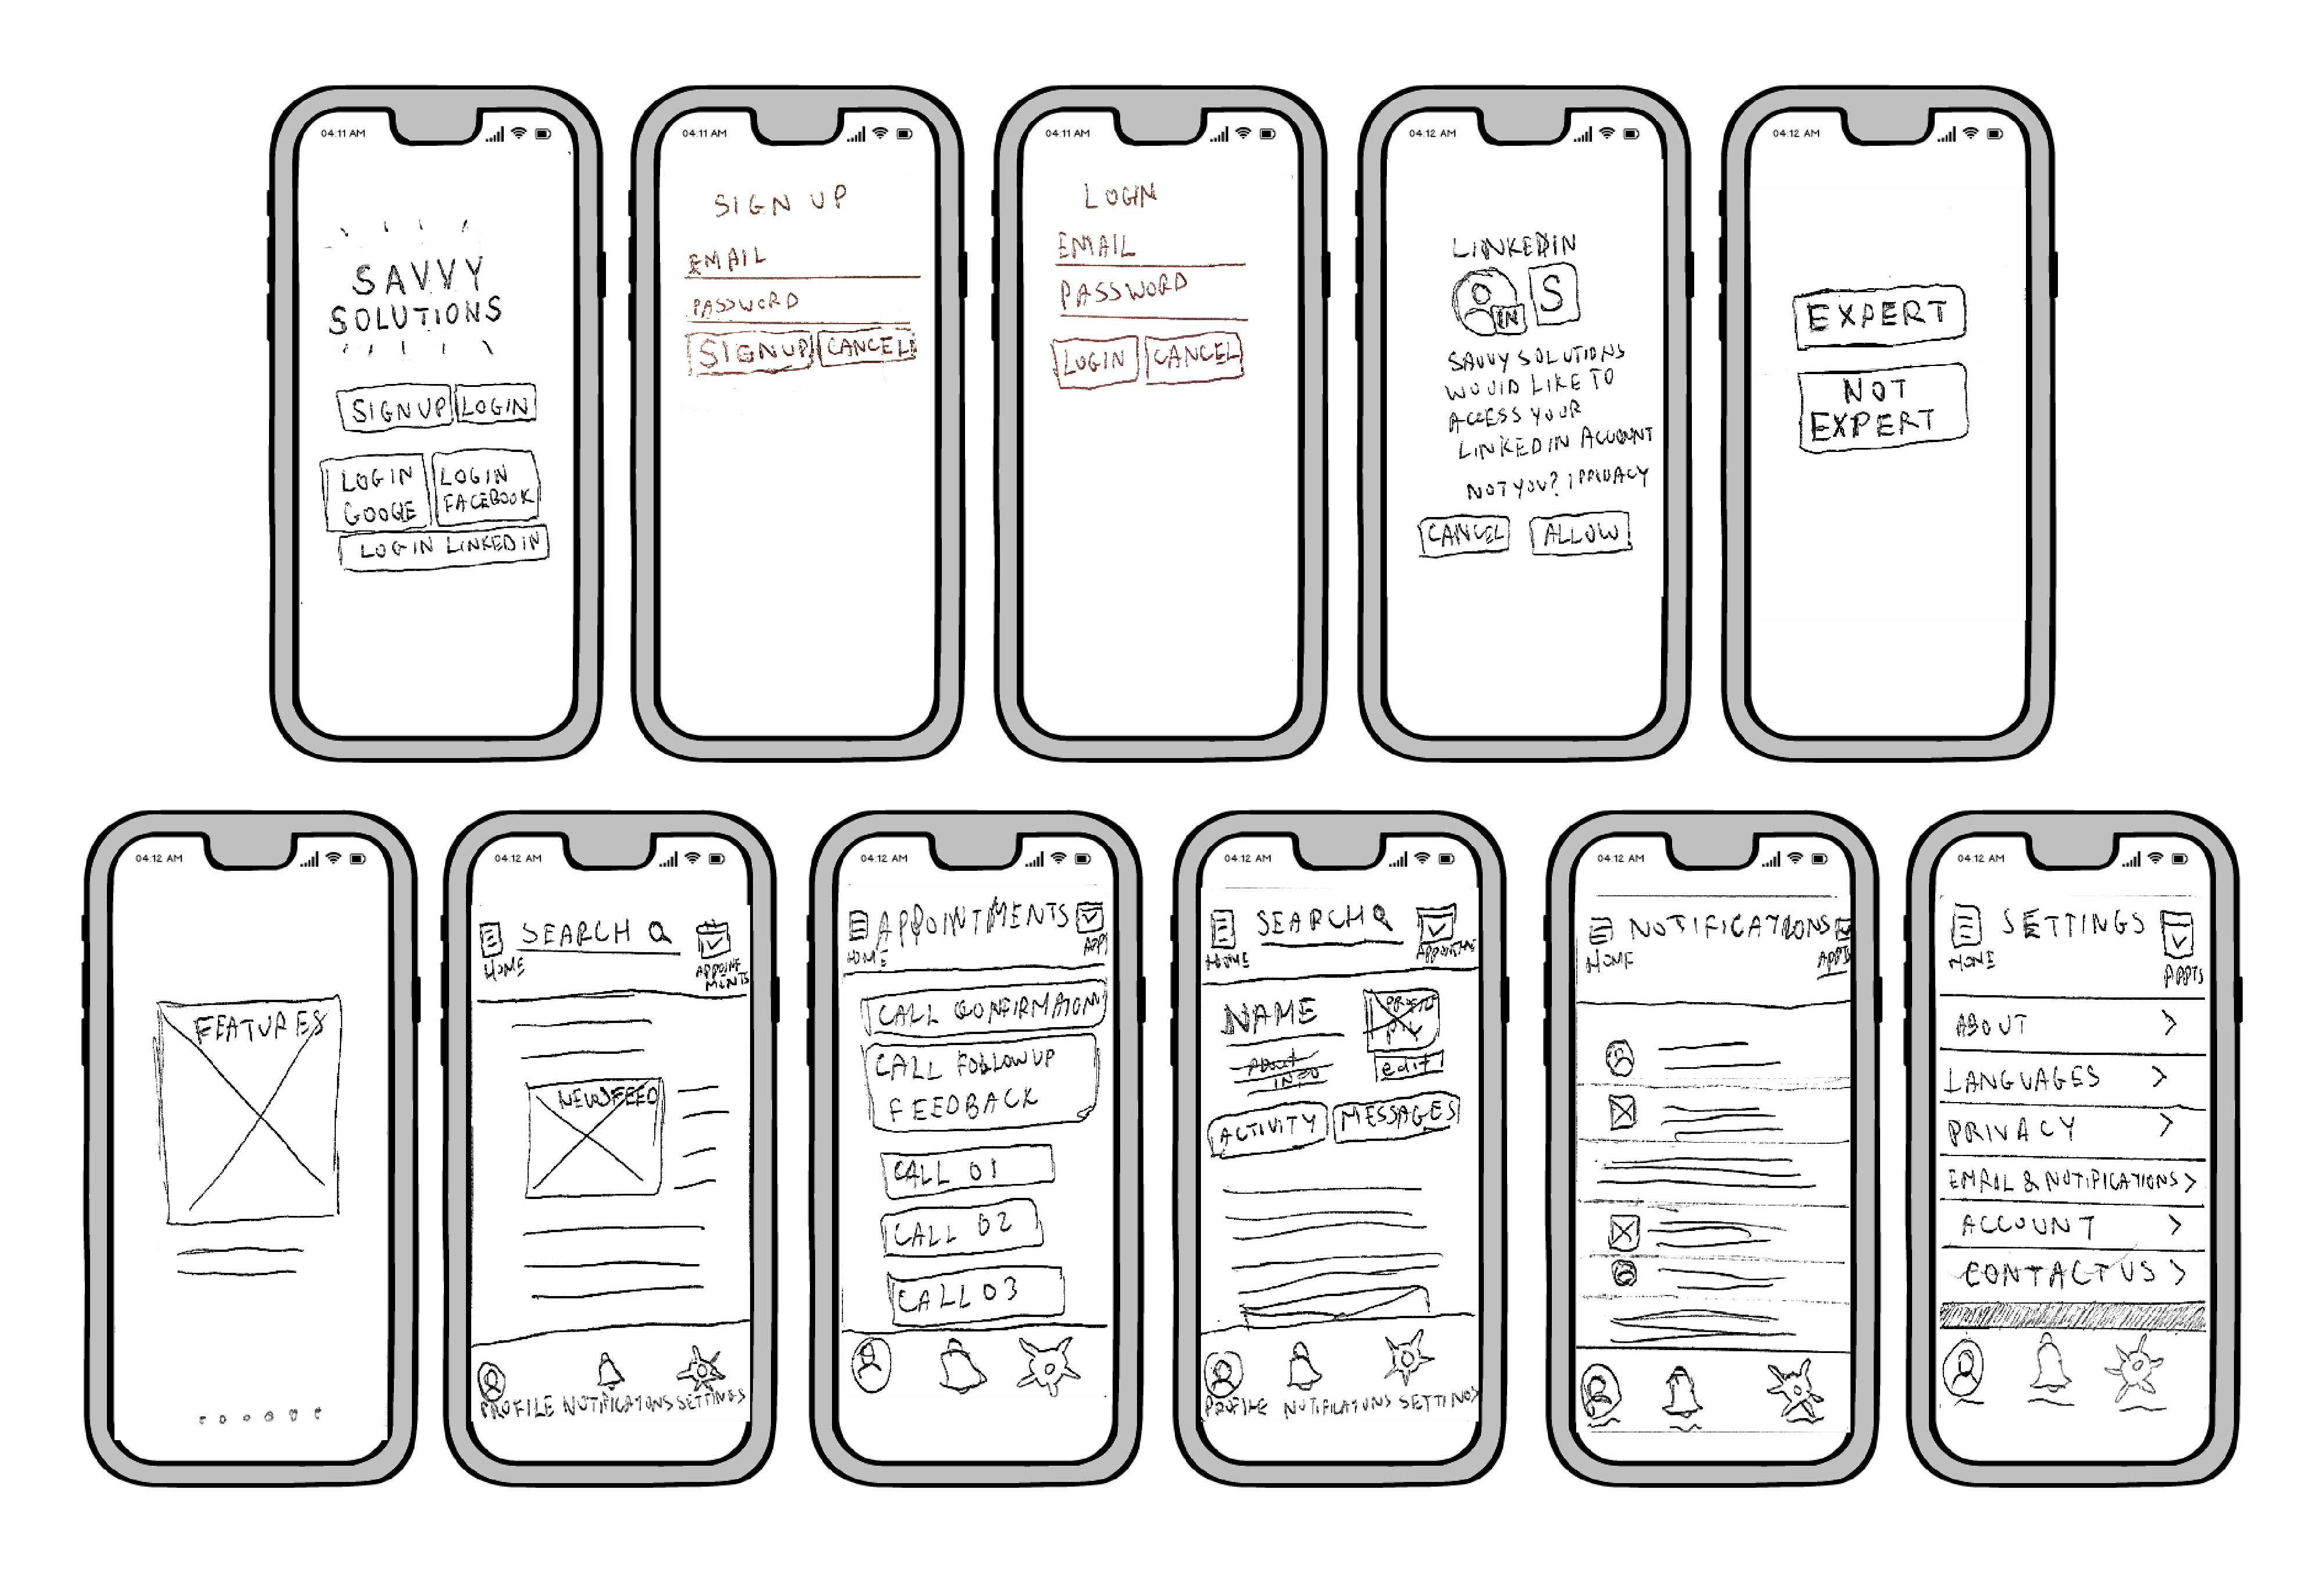 04:11 AM
SAVVY
SOLUTIONS
SIGN UP LOGIN
LOGIN
GOOGLE
LOGIN
FACEBOOK
LOGIN LINKEDIN
04:11 AM
SIGN UP
EMAIL
PASSWORD
SIGNUP CANCEL
04:11 AM
LOGIN
EMAIL
PASSWORD
LOGIN CANCEL
04:12 AM
LINKEDIN
IN S
SAVVY SOLUTIONS
WOULD LIKE TO
ACCESS YOUR
LINKEDIN ACCOUNT
NOT YOU? | PRIVACY
CANCEL ALLOW
04:12 AM
EXPERT
NOT
EXPERT
04:12 AM
FEATURES
04:12 AM
SEARCH
HOME
APPOINT
MENTS
NEWSFEED
PROFILE NOTIFICATIONS SETTINGS
04:12 AM
APPOINTMENTS
HOME
CALL CONFIRMATION
CALL FOLLOW UP
FEEDBACK
CALL 01
CALL 02
CALL 03
04:12 AM
SEARCH
HOME
NAME
PROFILE
PIC
About
INFO
edit
ACTIVITY MESSAGES
PROFILE NOTIFICATIONS SETTINGS
04:12 AM
NOTIFICATIONS
HOME APPTS
04:12 AM
SETTINGS
HOME APPTS
ABOUT >
LANGUAGES >
PRIVACY >
EMAIL & NOTIFICATIONS >
ACCOUNT >
CONTACT US >